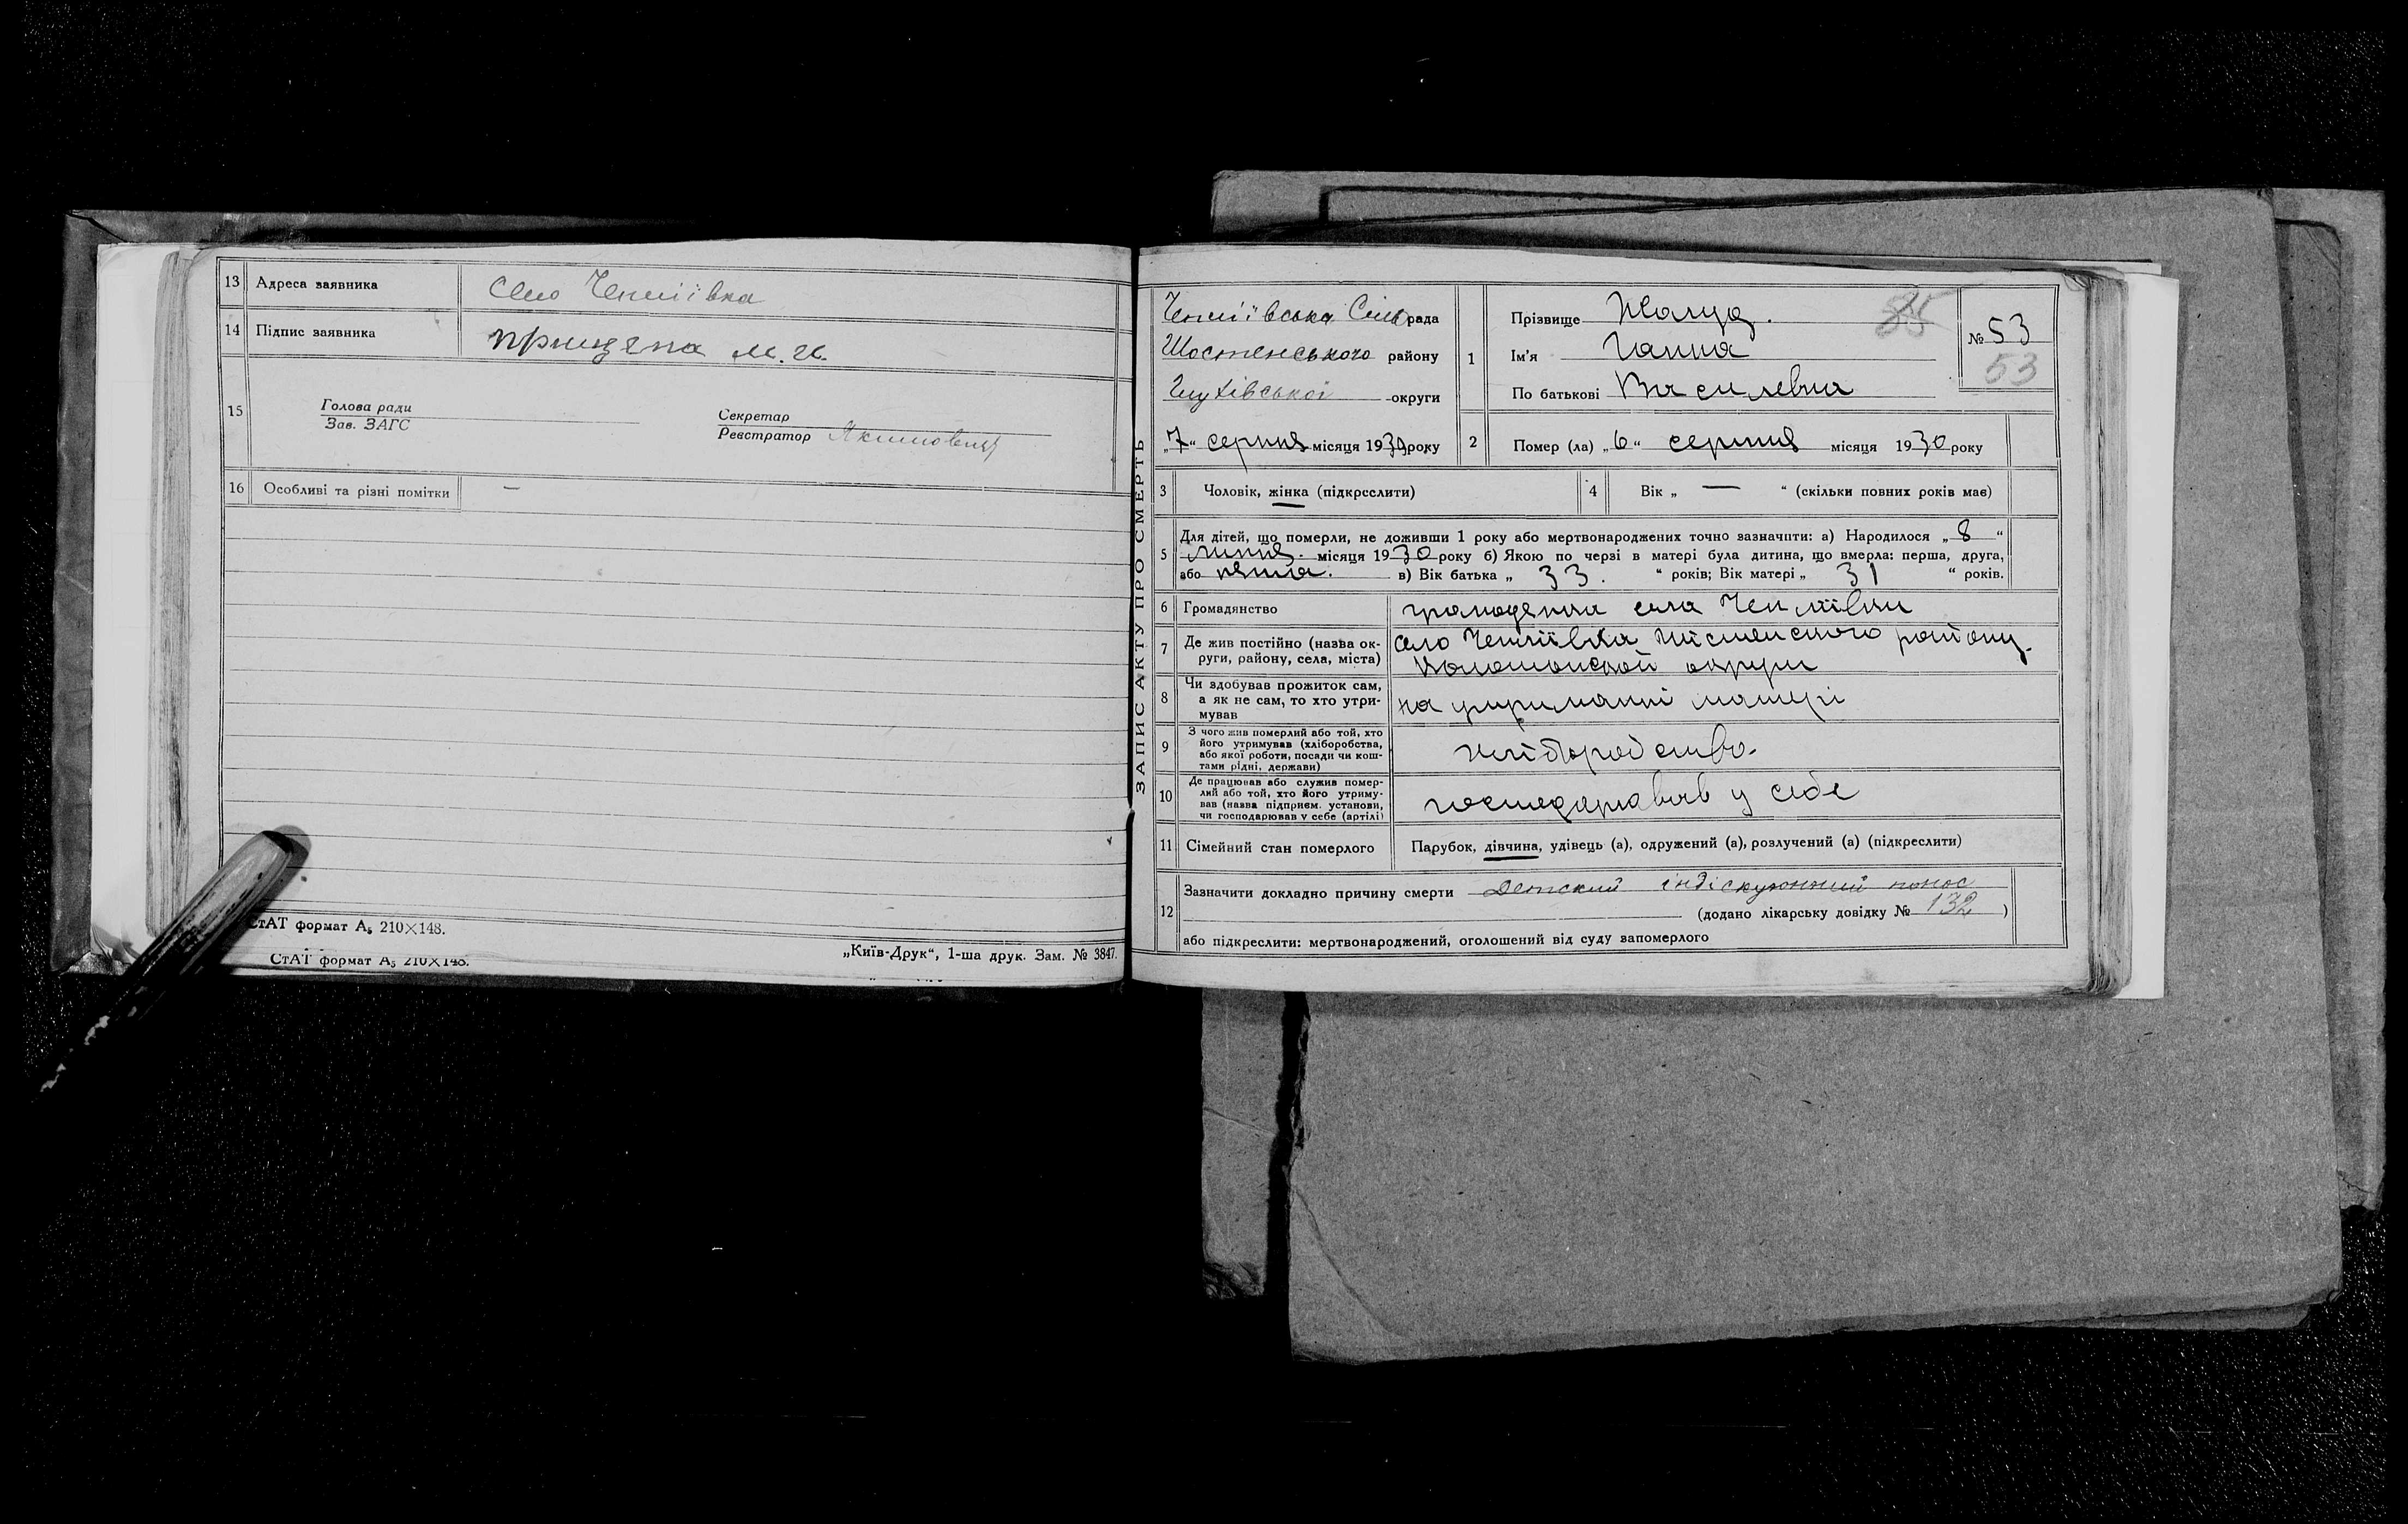 13 Адреса заявника Село Чепліївка
14 Підпис заявника Прищепа М. И.
15 Голова ради
Зав. ЗАГС
Секретар
Реєстратор
16 Особливі та різні помітки —
СтАТ формат А5 210×148.
СтАТ формат А5 210×148.
„Київ-Друк“, 1-ша друк. Зам. № 3847.
ЗАПИС АКТУ ПРО СМЕРТЬ
Чепліївська Сільрада
Шостенського району
Глухівської округи
„7“ серпня місяця 1930 року
1 Прізвище
Ім'я Ганна
По батькові Василевна
85
№ 53
53
2 Помер (ла) „6“ серпня місяця 1930 року
3 Чоловік, жінка (підкреслити)
4 Вік „ — “ (скільки повних років має)
5 Для дітей, що померли, не доживши 1 року або мертвонароджених точно зазначити: а) Народилося „8“
липня. місяця 1930 року б) Якою по черзі в матері була дитина, що вмерла: перша, друга,
або пята. в) Вік батька „ 33. “ років; Вік матері „ 31 “ років.
6 Громадянство громадянка села Чепліївки
7 Де жив постійно (назва округи, району, села, міста)
село Чепліївка району
округи
8 Чи здобував прожиток сам,
а як не сам, то хто утримував
на утриманні матері
9 З чого жив померлий або той, хто
його утримував (хліборобства,
або якої роботи, посади чи коштами рідні, держави)
хліборобство.
10 Де працював або служив померлий або той, хто його утримував (назва підприєм. установи,
чи господарював у себе (артілі)
господарював у себе
11 Сімейний стан померлого Парубок, дівчина, удівець (а), одружений (а), розлучений (а) (підкреслити)
12 Зазначити докладно причину смерти Детский понос
(додано лікарську довідку № 132 )
або підкреслити: мертвонароджений, оголошений від суду запомерлого